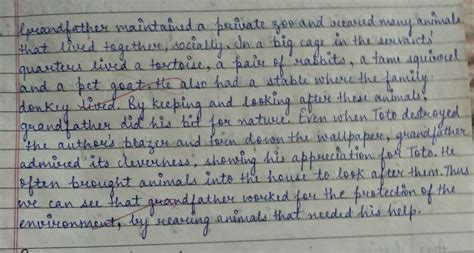 Grandfather maintained a private zoo and reared many animals
that lived together, socially. In a big cage in the servants'
quarters lived a tortoise, a pair of rabbits, a tame squirrel
and a pet goat. He also had a stable where the family
donkey lived. By keeping and looking after these animals,
grandfather did his bit for nature. Even when Toto destroyed
the author's blazer and torn down the wallpaper, grandfather
admired its cleverness, showing his appreciation for Toto. He
often brought animals into the house to look after them. Thus
we can see that grandfather worked for the protection of the
environment, by rearing animals that needed his help.